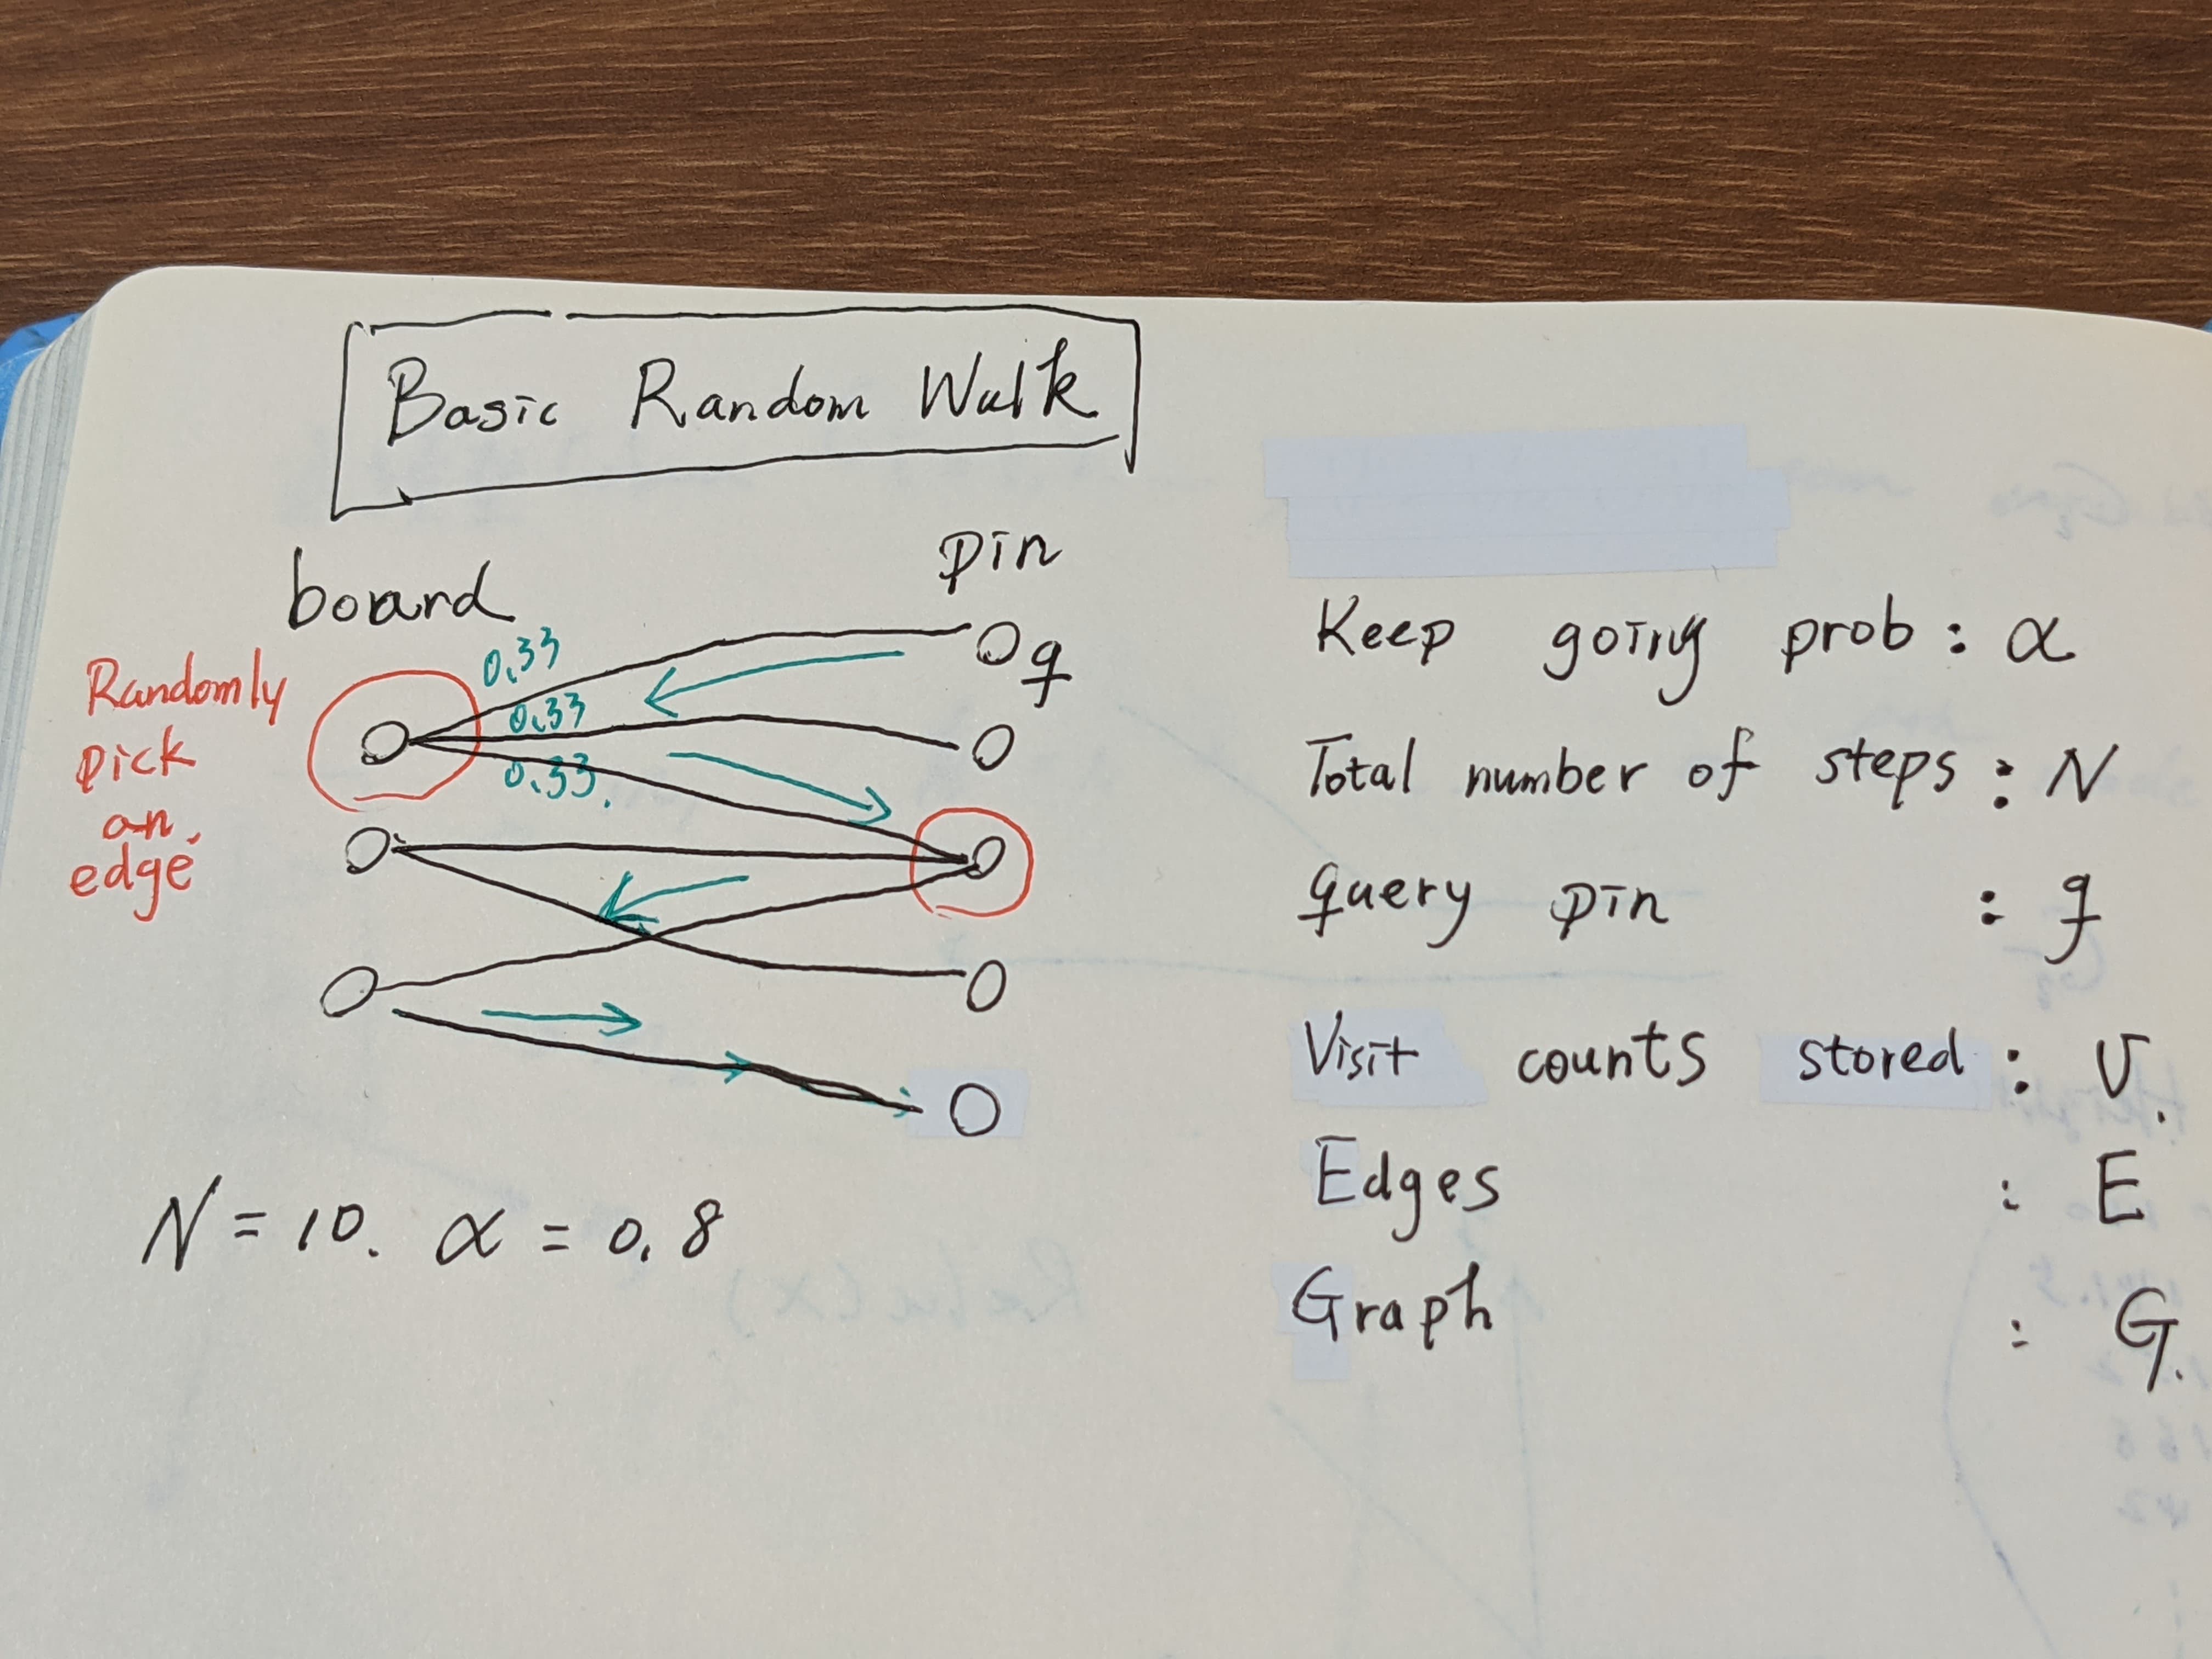 Basic Random Walk
board
pin
Randomly
pick
an
edge
0.33
0.33
0.33.
q
N = 10. α = 0.8
Keep going prob : α
Total number of steps : N
query pin : q
Visit counts stored : V.
Edges : E
Graph : G.